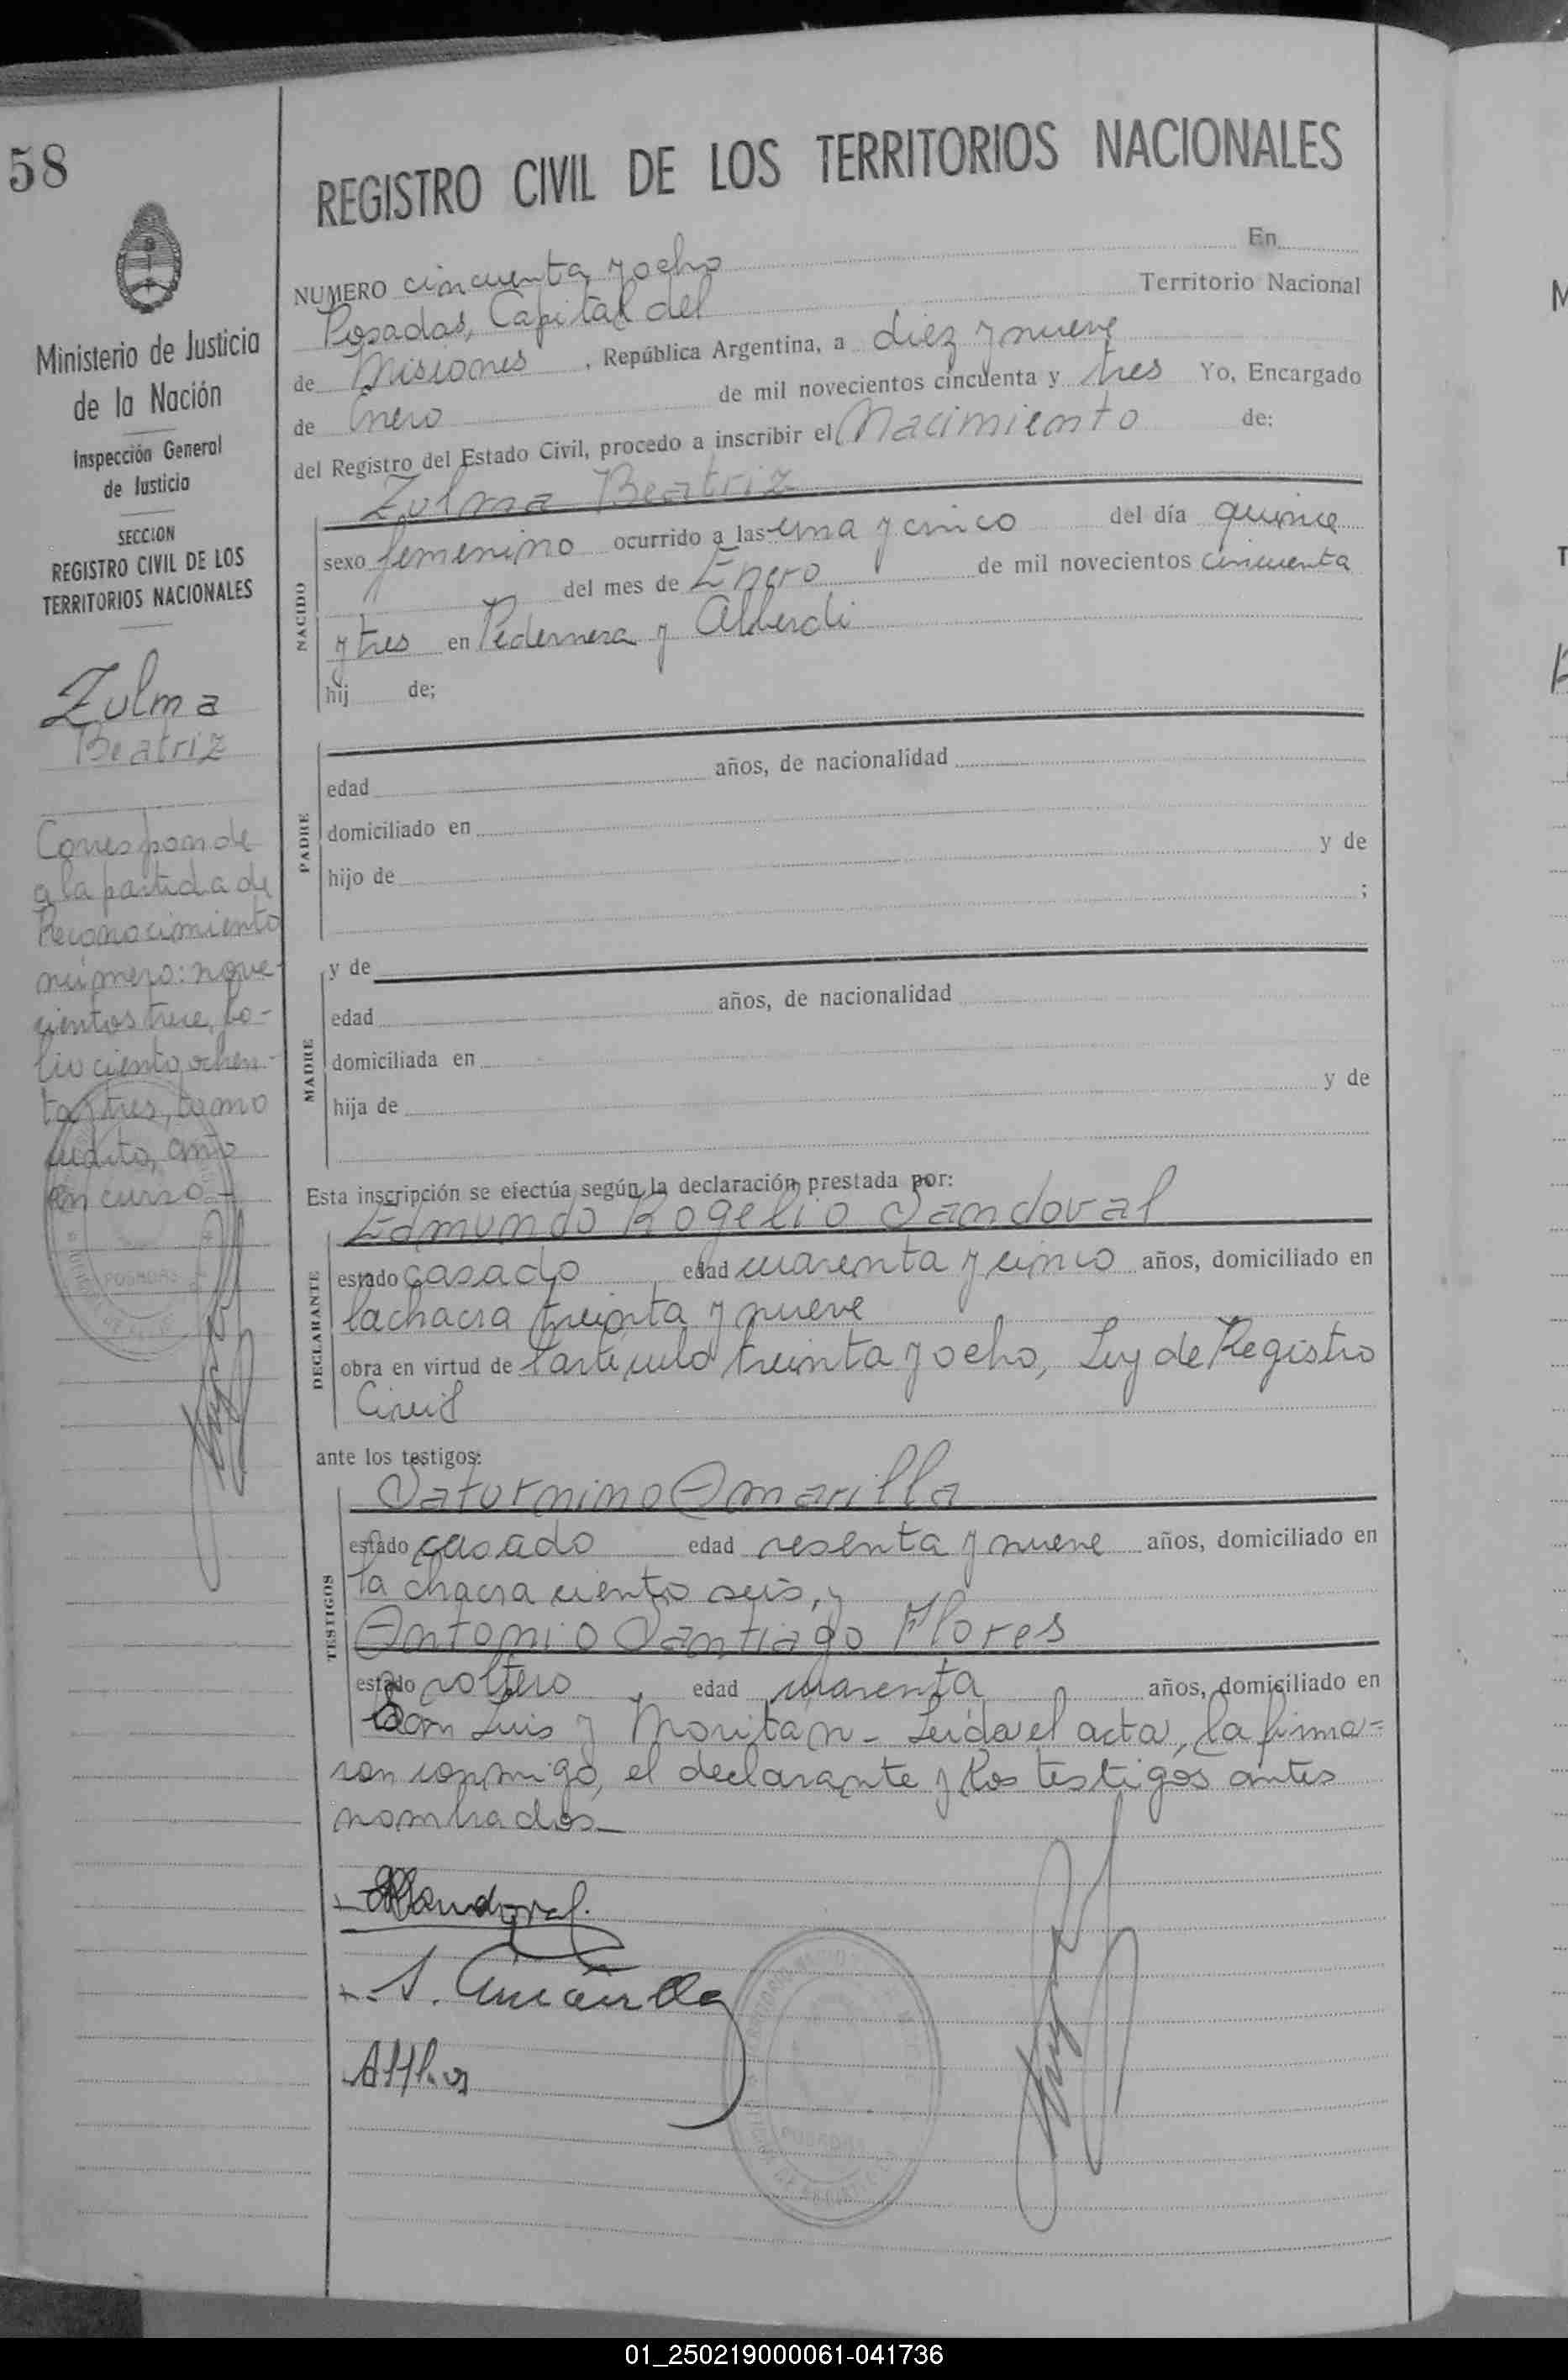 58
Ministerio de Justicia
de la Nación
Inspección General
de Justicia
SECCION
REGISTRO CIVIL DE LOS
TERRITORIOS NACIONALES
Zulma
Beatriz
Corresponde
a la partida de
Reconocimiento
número: nove-
cientos trece, fo-
lio ciento ochen-
ta y tres, tomo
cuarto, año
en curso.-
POSADAS
REGISTRO CIVIL DE LOS TERRITORIOS NACIONALES
NUMERO cincuenta y ocho En
Posadas, Capital del Territorio Nacional
de Misiones, República Argentina, a diez y nueve
de Enero de mil novecientos cincuenta y tres Yo, Encargado
del Registro del Estado Civil, procedo a inscribir el Nacimiento de:
Zulma Beatriz
NACIDO
sexo femenino ocurrido a las una y cinco del día quince
del mes de Enero de mil novecientos cincuenta
y tres en Pedernera y Alberdi
hij de;
PADRE
edad años, de nacionalidad
domiciliado en
hijo de y de
;
MADRE
y de
edad años, de nacionalidad
domiciliada en
hija de y de
Esta inscripción se efectúa según la declaración prestada por:
Edmundo Rogelio Sandoval
DECLARANTE
estado casado edad cuarenta y cinco años, domiciliado en
la chacra treinta y nueve
obra en virtud de l'artículo treinta y ocho, Ley de Registro
Civil
ante los testigos:
Saturnino Amarilla
TESTIGOS
estado casado edad sesenta y nueve años, domiciliado en
la chacra ciento seis, y
Antonio Santiago Flores
estado soltero edad cuarenta años, domiciliado en
San Luis y Moritán - Leída el acta, la firma=
ron conmigo, el declarante y los testigos antes
nombrados.-
Sandoval.
S. Amarilla
POSADAS
01_250219000061-041736